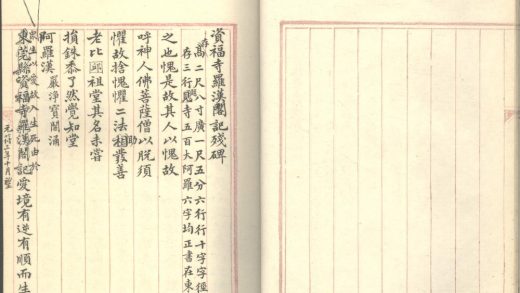 資福寺羅漢閣記殘碑
存高二尺八寸廣一尺五分六行行十字字徑
存三行寺五百大阿羅六字均正書在東
之也愧是故其人以愧故
呼神人佛菩薩僧以脫須
懼故捨愧懼二法相助叢善
老比祖堂其名未嘗
損銖黍了然覺知堂
阿羅漢 嚴淨寶閣涌
眾生以愛故入生死由於
東莞縣資福寺羅漢閣記愛境有逆有順而生
元符三年十月望